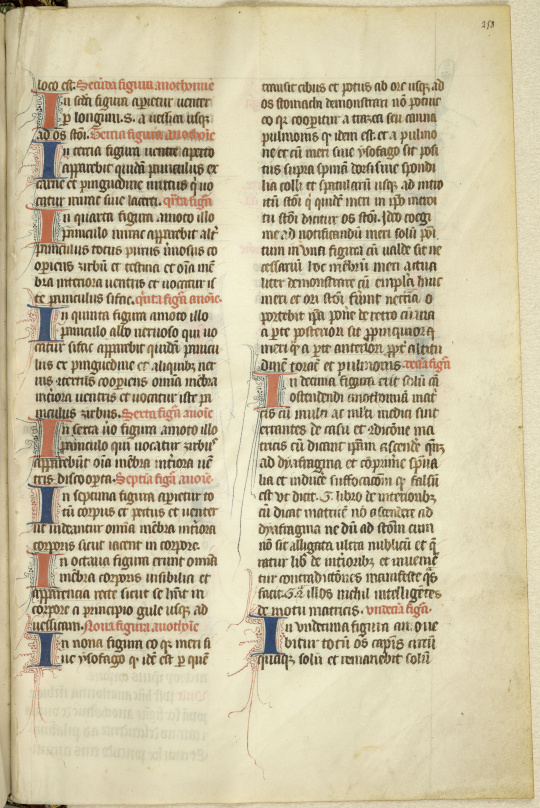 258
loco est. Secunda figura anothomie
In secda figura aperietur venter
per longum. s. a vesica usq3
ad os stoi. Tertia figura anothoie
In tertia figura ventre aperto
apparebit quidam panniculus ex
carne et pinguedine mixtus q vo
catur mirac siue lacert. quarta figa
In quarta figura amoto illo
panniculo mirac apparebit alt9
panniculus totus purus neruosus co
operiens zirbum et testina et oia me
bra interiora ventris et vocatur is
te panniculus sifac. Quinta figa anoie.
In quinta figura amoto illo
panniculo albo neruoso qui vo
catur sifac apparebit quidam pannicu
lus ex pinguedine et aliquibz ner
uis cooperiens omnia mebra
interiora ventris et vocatur iste pa
niculus zirbus. Sexta figa anoie
In sexta uo figura amoto illo
panniculo qui vocatur zirbus
apparebunt oia mebra interiora ven
tris discooperta. Septia figa anoie
In septima figura aperietur to
tum corpus et pectus et venter
ut uideantur omnia mebra interiora
corporis sicut iacent in corpore.
In octaua figura erunt omnia
mebra corporis insibilia et
apparencia recte sicut se hnt in
corpore a principio gule usq3 ad
vessicam. Nona figura anothoie
In nona figura eo q3 meri si
ue ysofago q idem est per quem
transit cibus et potus ab ore usq3 ad
os stomachi demonstrari non potuit
eo q3 cooperitur a trachea seu canna
pulmonis q idem est et a pulmo
ne et cum meri siue ysofago sit posi
tus supra spinam dorsi siue spondi
lia colli et spatularum usq3 ad intro
itum stoi q quidem meri in ipso introi
tu stoi dicitur os stoi. Ideo coegi
me ad notificandum meri solum poi
tum in vna figura cum valde sit ne
cessarium hoc membrum meri actua
liter demonstrare cum emplastra huic
meri et ori stoi fiunt necessaria. o
portebit ipsa pone de retro cum uia
a parte posteriori sit propinquior q3
meri q a parte anteriori propter altitu
dinem toracis et pulmonis. decia figa
In decima figura erit solum ca
ostendendi anothomia mat
cis cum multi ac multi medici sint
errantes de casu et ratione ma
tricis cum dicant ipsam ascendere q3
ad dyafragma et comprimere spiritua
lia et inducere suffocationem q falsum
est ut dicit .G. libro de interioribz
cum dicat matricem non ascendere ad
dyafragma ne dum ad stoim cum
non sit alligata ultra umbilicum et q
ratur lib de interioribz et inuenie
tur contradictiones manifeste qs
facit .G. contra illos nichil intelligentes
de motu matricis. vndecia figa.
In vndecima figura amoue
bitur totum os capitis circum
quaq3 solum et remanebit solum